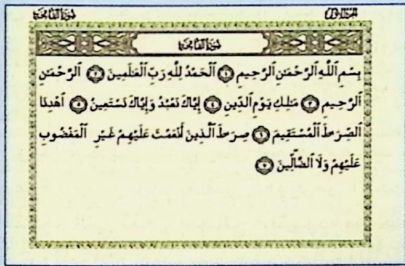 سُورَةُ الفَاتِحَةِ
سُورَةُ الفَاتِحَةِ
بِسْمِ ٱللَّهِ ٱلرَّحْمَٰنِ ٱلرَّحِيمِ ١ ٱلْحَمْدُ لِلَّهِ رَبِّ ٱلْعَٰلَمِينَ ٢ ٱلرَّحْمَٰنِ
ٱلرَّحِيمِ ٣ مَٰلِكِ يَوْمِ ٱلدِّينِ ٤ إِيَّاكَ نَعْبُدُ وَإِيَّاكَ نَسْتَعِينُ ٥ ٱهْدِنَا
ٱلصِّرَٰطَ ٱلْمُسْتَقِيمَ ٦ صِرَٰطَ ٱلَّذِينَ أَنْعَمْتَ عَلَيْهِمْ غَيْرِ ٱلْمَغْضُوبِ
عَلَيْهِمْ وَلَا ٱلضَّآلِّينَ ٧